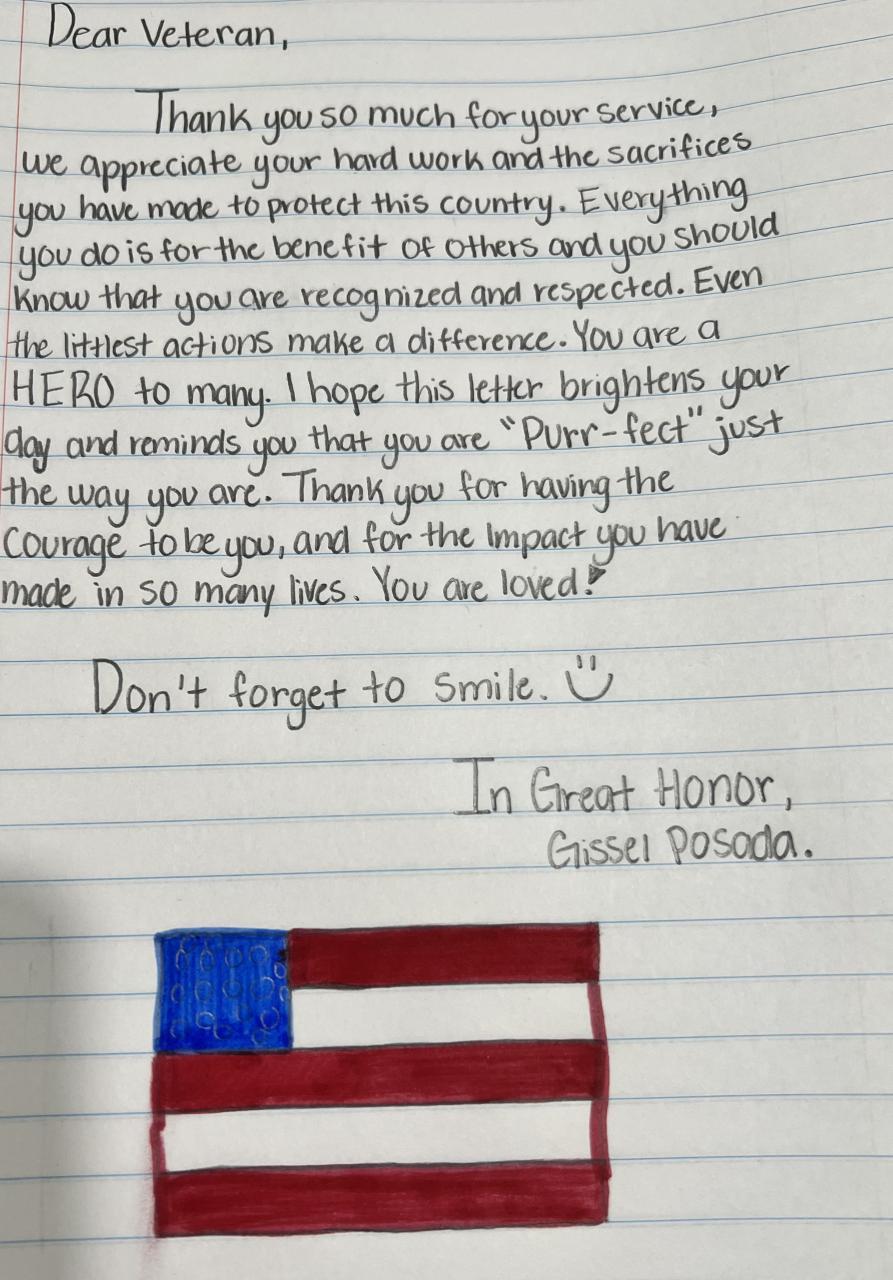 Dear Veteran,
Thank you so much for your service,
we appreciate your hard work and the sacrifices
you have made to protect this country. Everything
you do is for the benefit of others and you should
know that you are recognized and respected. Even
the littlest actions make a difference. You are a
HERO to many. I hope this letter brightens your
day and reminds you that you are "Purr-fect" just
the way you are. Thank you for having the
courage to be you, and for the impact you have
made in so many lives. You are loved!
Don't forget to smile. Ü
In Great Honor,
Gissel Posada.